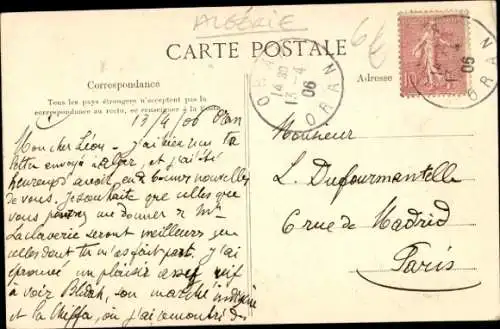 ALGÉRIE
CARTE POSTALE
Correspondance
Tous les pays étrangers n'acceptent pas la
correspondance au recto, se renseigner à la
Adresse
ORAN
14 30
13 - 4
06
ORAN
ORAN
06
10
13/4/06 Oran
Mon cher Léon, j'ai hier eu ta
lettre envoyé à Alger, et j'ai été
heureux d'avoir en 2 bonnes nouvelles
de vous. Je souhaite que celles que
vous pourrez me donner de Mr
Laclaverie seront meilleures que
celles dont tu m'as fait part. J'ai
éprouvé un plaisir assez vif
à voir Blidah, son marché indigène
et la Chiffa, où j'ai rencontré des
Monsieur
L. Dufourmantelle
6 rue de Madrid
Paris